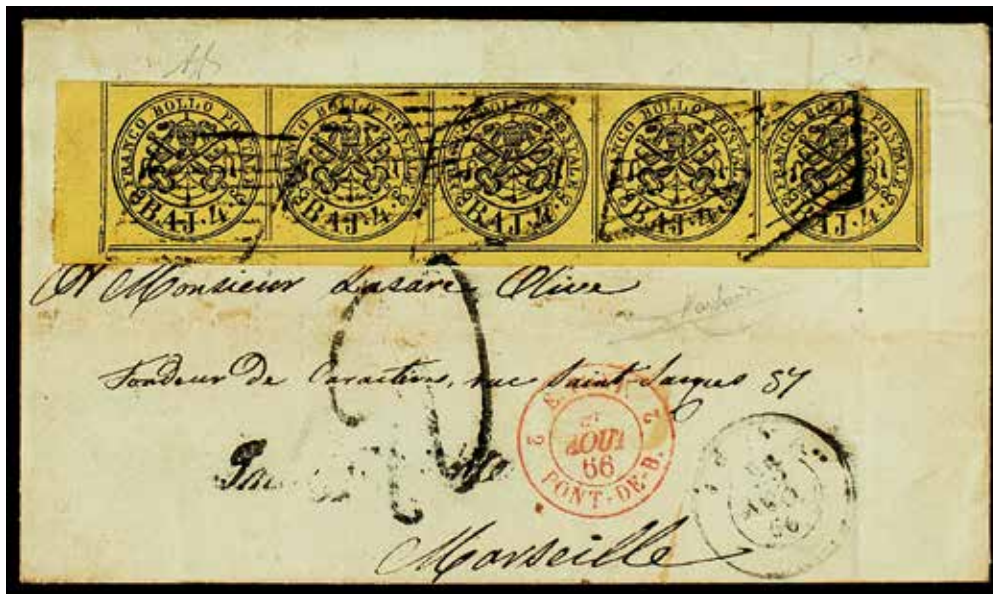 FRANCO BOLLO POSTALE BAJ. 4
FRANCO BOLLO POSTALE BAJ. 4
FRANCO BOLLO POSTALE BAJ. 4
FRANCO BOLLO POSTALE BAJ. 4
FRANCO BOLLO POSTALE BAJ. 4
A Monsieur Lazare Olive
Fondeur de Caractères, rue Saint-Jacques 57
2 AOUT 2
66
PONT-DE-B.
Marseille